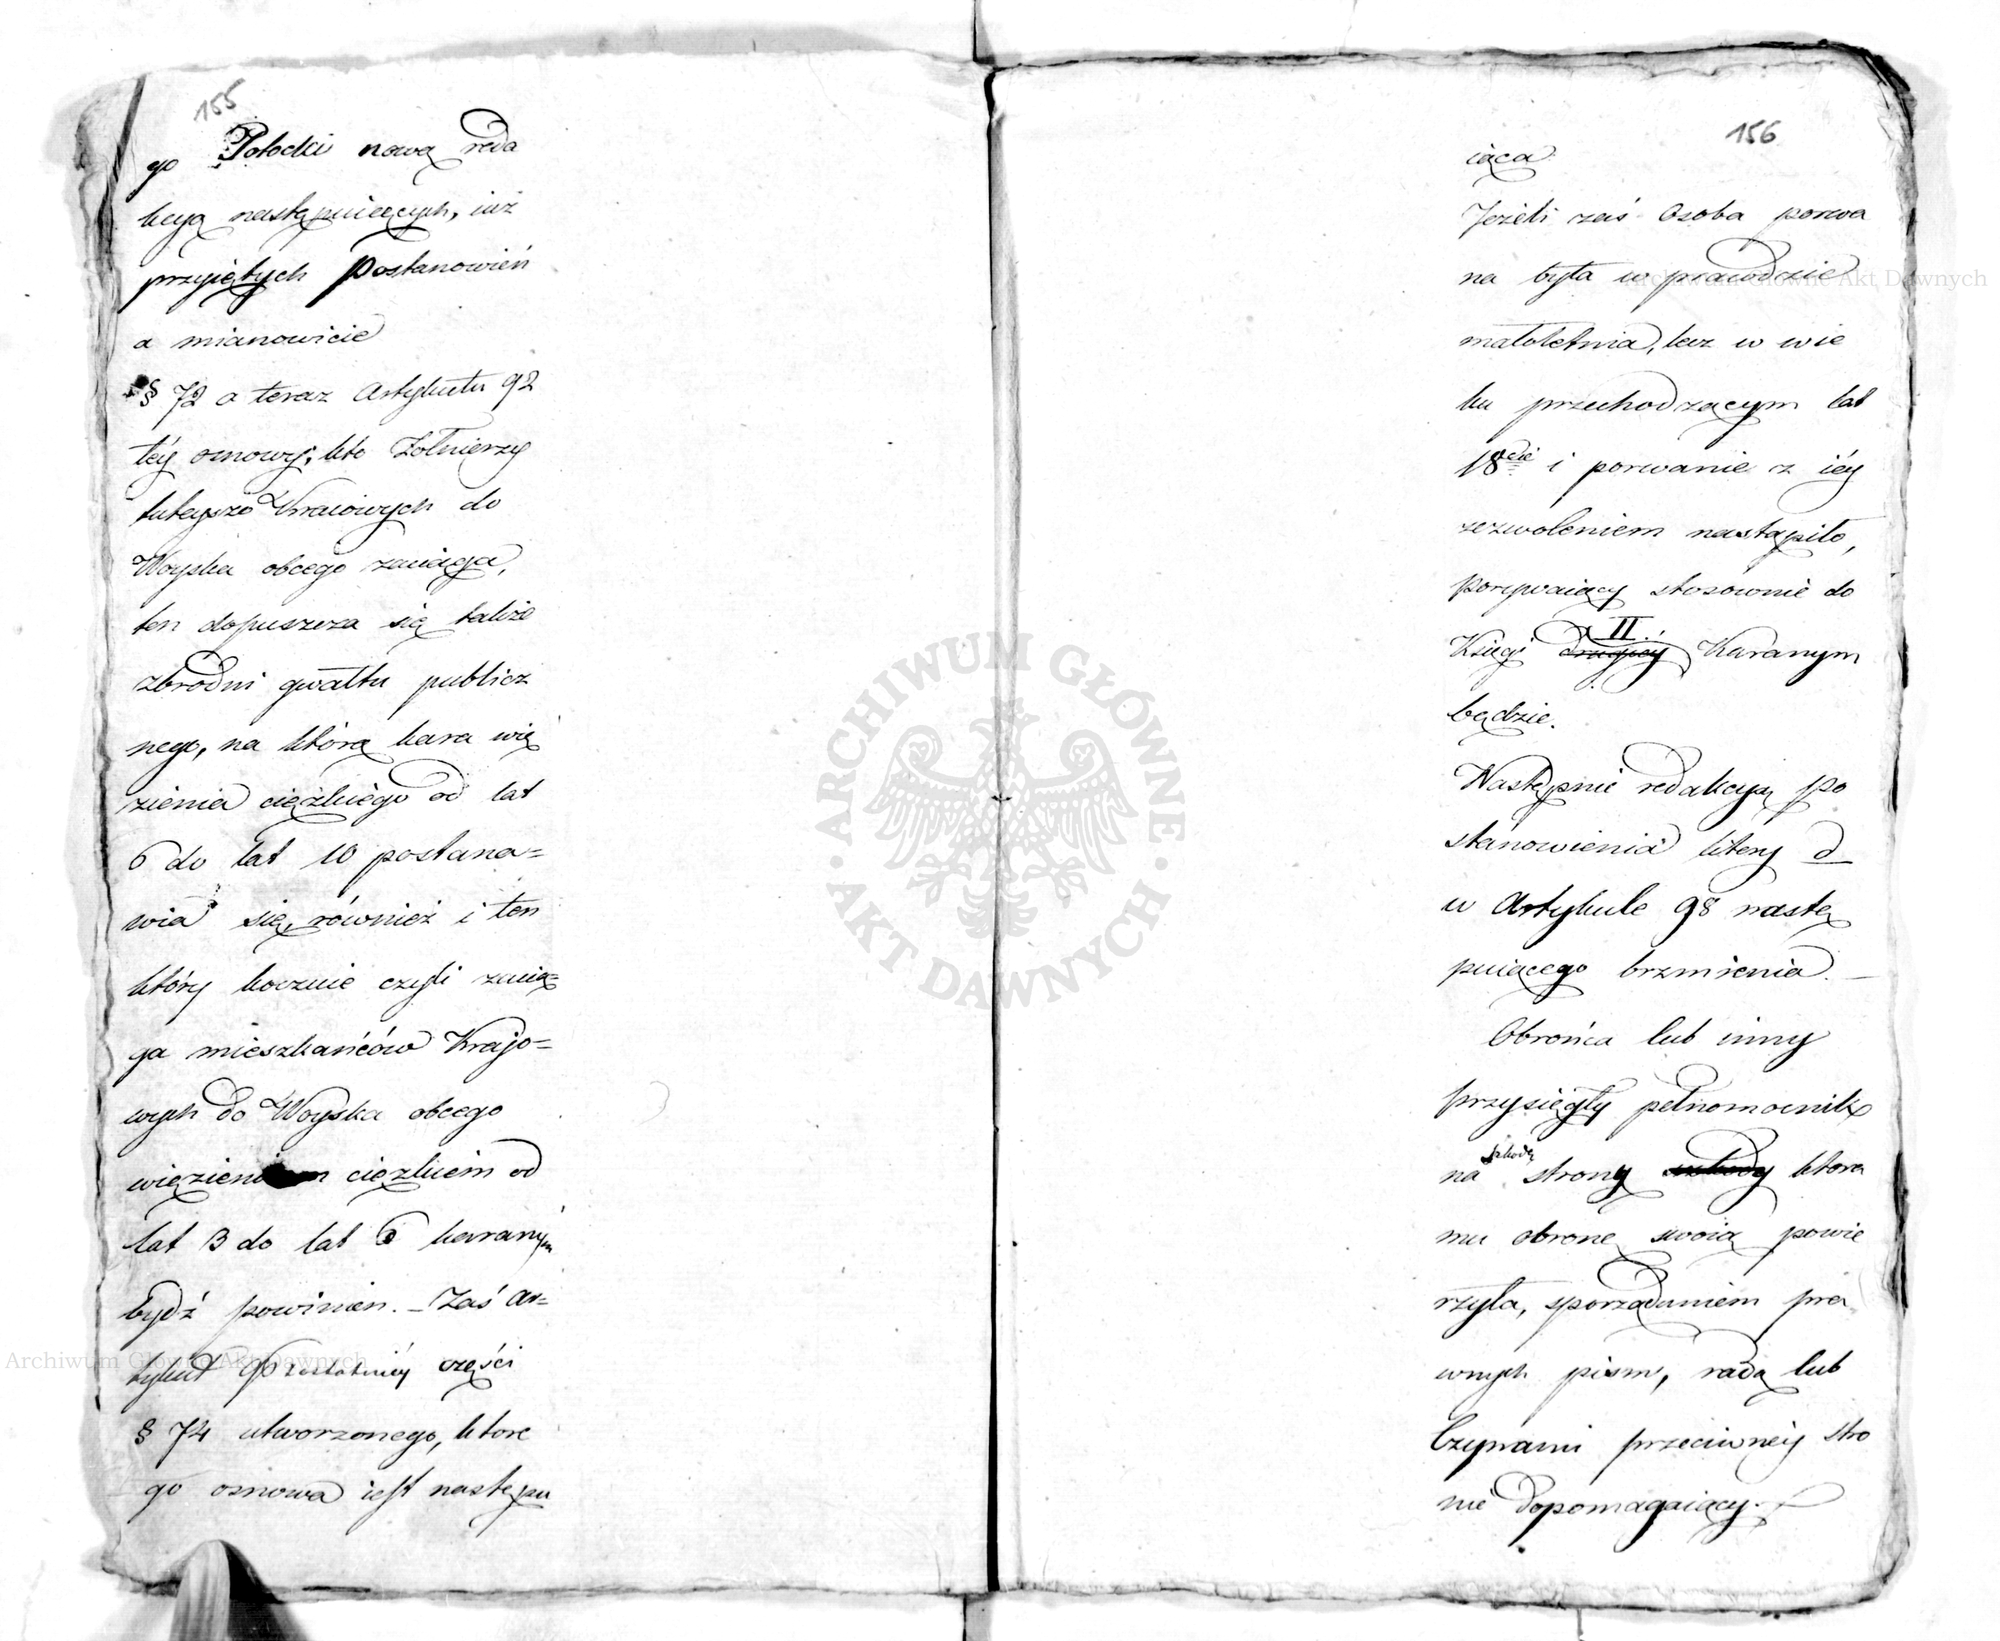 155
go Potocki nową reda
kcyą następuiących, iuż
przyiętych Postanowień
a mianowicie
§ 72 a teraz Artykułu 92
téy osnowy; kto Żołnierzy
tuteyszo Kraiowych do
Woyska obcego zaciąga,
ten dopuszcza się także
zbrodni gwałtu publicz
nego, na którą kara wię
zienia ciężkiego od lat
6 do lat 10 postana=
wia się, również i ten
który kocznie czyli zacią=
ga mieszkańców Krajo=
wych do Woyska obcego
więzieniem ciężkiem od
lat 3 do lat 6 karanym
bydź powinien. – Zaś Ar=
tykuł 96 z ostatniéy części
§ 74 utworzonego, które
go osnowa iest następu
156
iąca
Jeżeli zaś Osoba porwa
na była wprawdzie
małoletnia, lecz w wie
ku przechodzącym lat
18ście i porwanie z iéy
zezwoleniem nastąpiło,
porywaiący stosownie do
II.
Księgi drugiéy Karanym
będzie.
Następnie redakcyą po
stanowienia litery d
w Artykule 98 nastę
puiącego brzmienia. –
Obrońca lub inny
przysięgły pełnomocnik
szkodę
na strony szkody która
mu obronę swoią powie
rzyła, sporządzeniem pra
wnych pism, radą lub
Czynami przeciwnéy stro
nie dopomagaiący.
ARCHIWUM GŁÓWNE AKT DAWNYCH
Archiwum Główne Akt Dawnych
Archiwum Główne Akt Dawnych